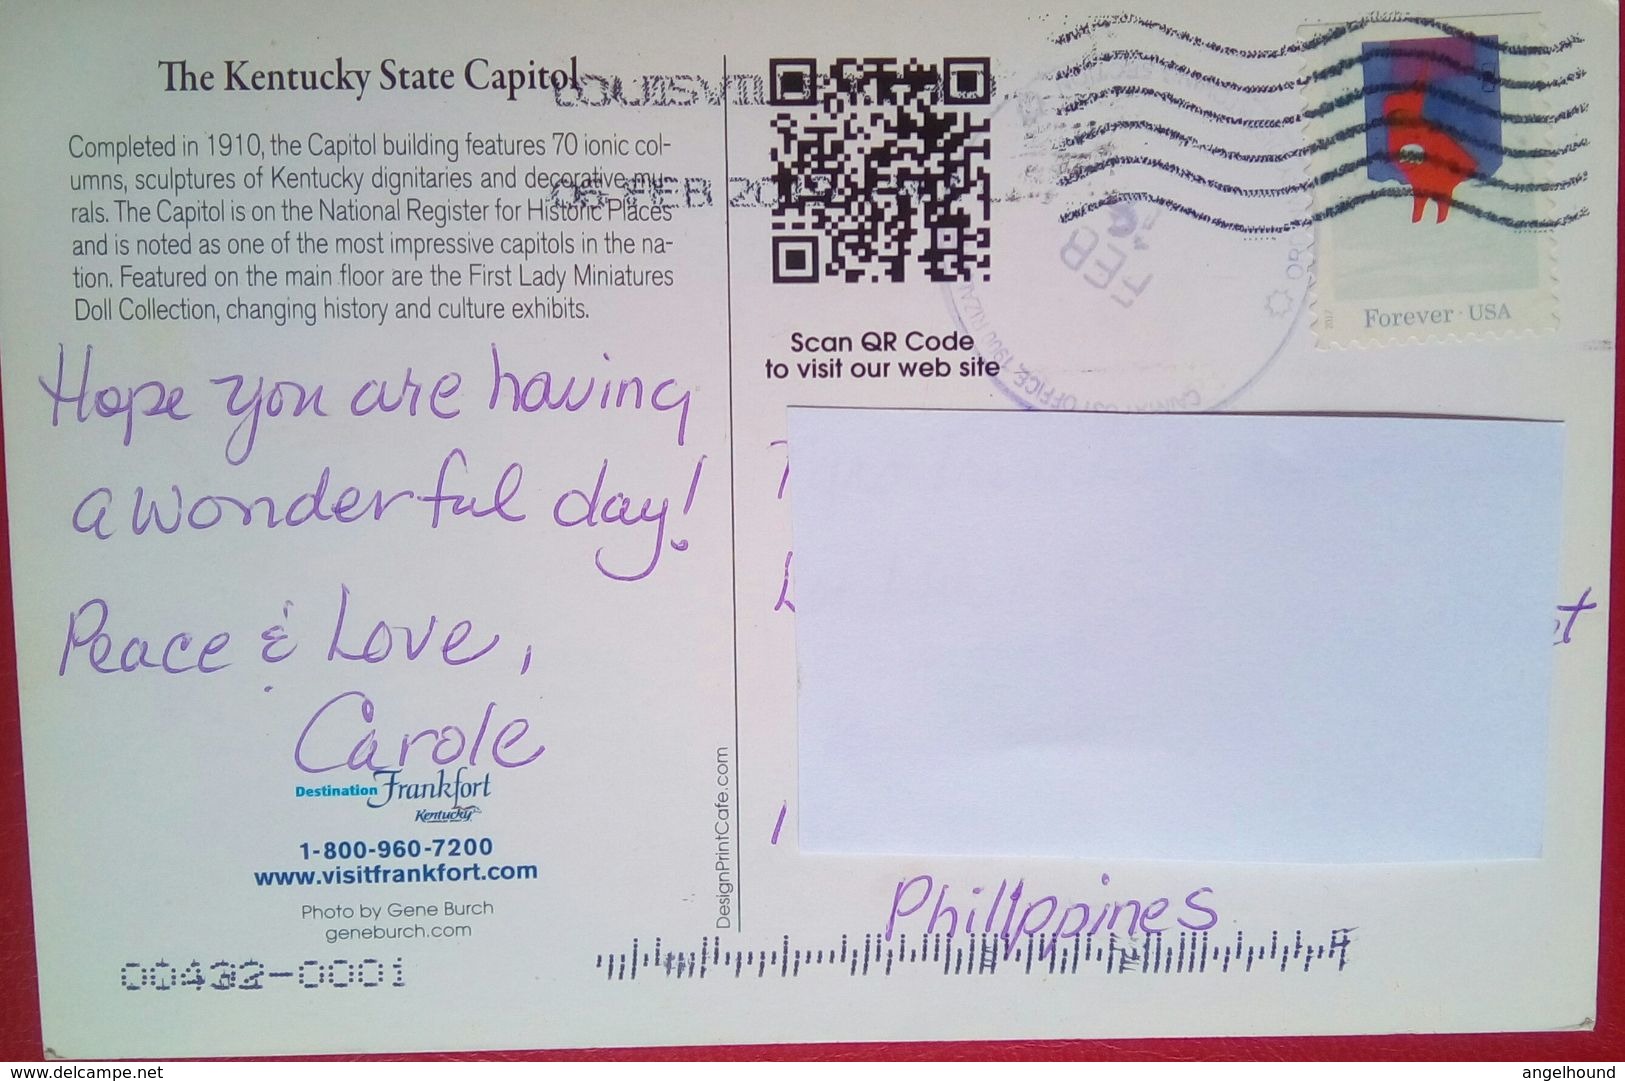 The Kentucky State Capitol
Completed in 1910, the Capitol building features 70 ionic col-
umns, sculptures of Kentucky dignitaries and decorative mu-
rals. The Capitol is on the National Register for Historic Places
and is noted as one of the most impressive capitols in the na-
tion. Featured on the main floor are the First Lady Miniatures
Doll Collection, changing history and culture exhibits.
Hope you are having
a wonderful day!
Peace & Love,
Carole
Destination Frankfort
Kentucky
1-800-960-7200
www.visitfrankfort.com
Photo by Gene Burch
geneburch.com
00432-0001
DesignPrintCafe.com
Scan QR Code
to visit our web site
FEB
Forever · USA
2017
Philippines
www.delcampe.net
angelhound